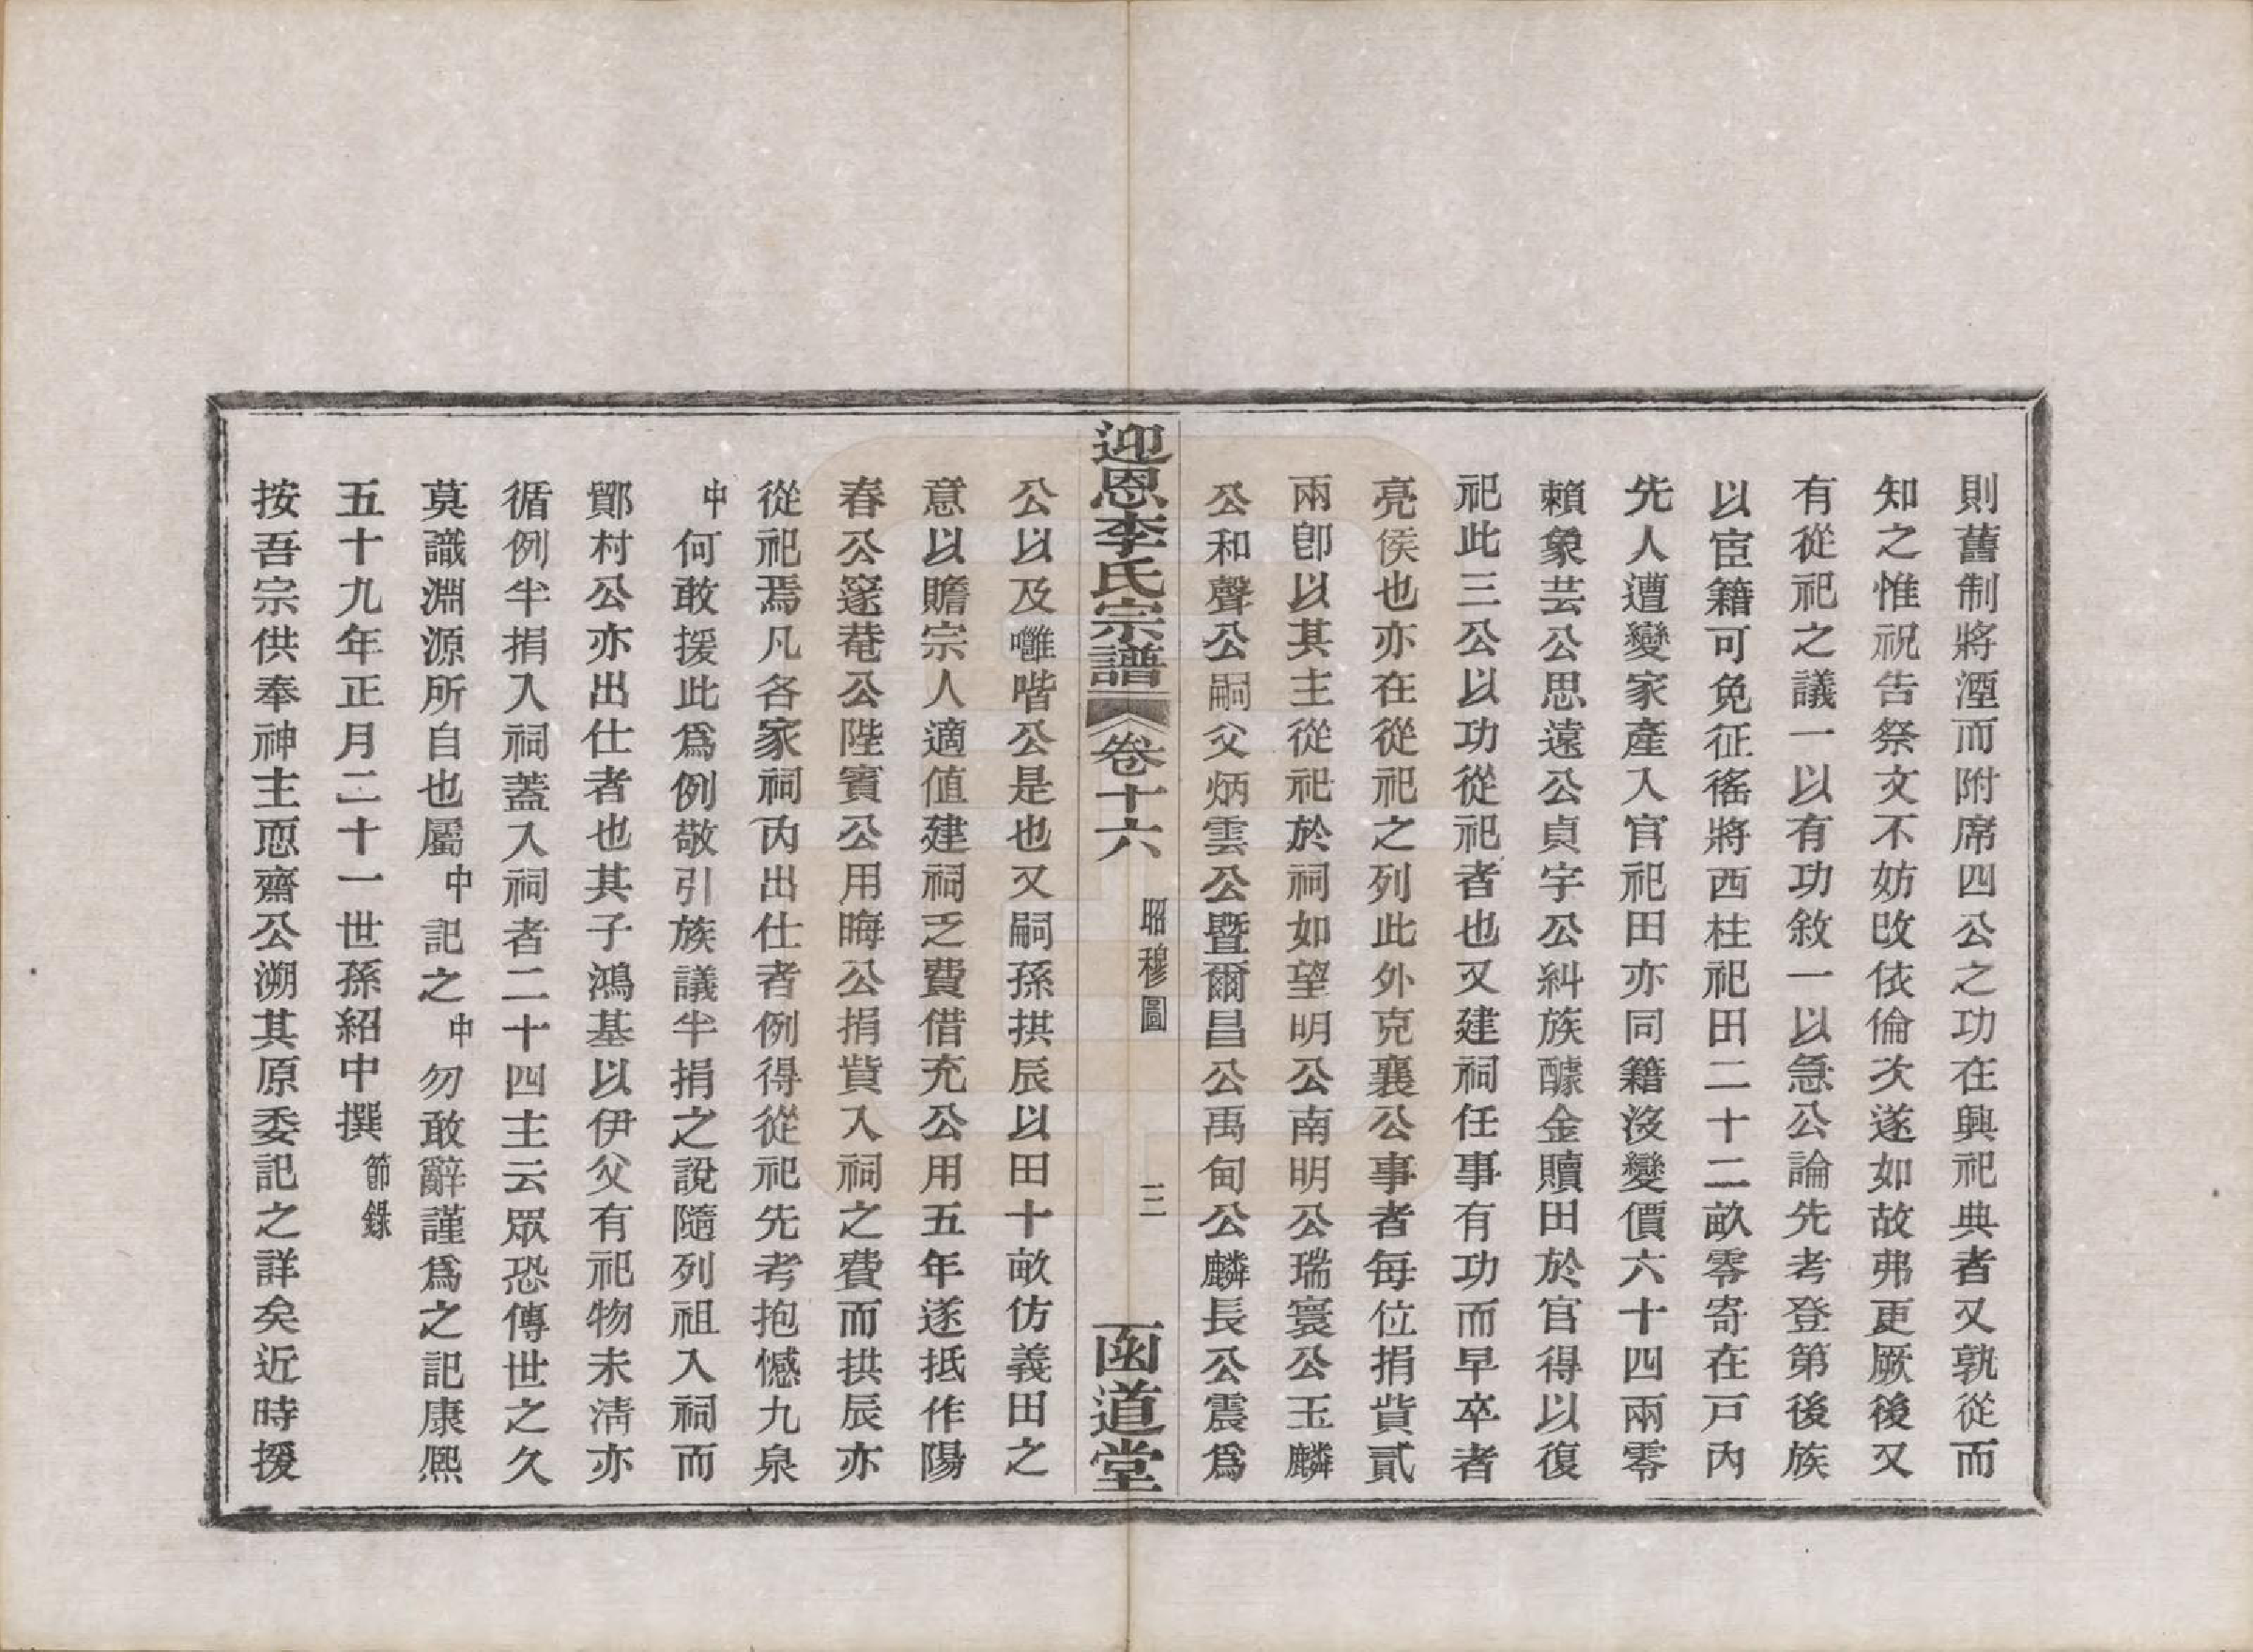 則舊制將湮而附席四公之功在興祀典者又孰從而
知之惟祝告祭文不妨改依倫次遂如故弗更厥後又
有從祀之議一以有功敘一以急公論先考登第後族
以宦籍可免征徭將西柱祀田二十二畝零寄在戸內
先人遭變家產入官祀田亦同籍沒變價六十四兩零
賴象芸公思遠公貞宇公糾族醵金贖田於官得以復
祀此三公以功從祀者也又建祠任事有功而早卒者
亮侯也亦在從祀之列此外克襄公事者每位捐貲貳
兩卽以其主從祀於祠如望明公南明公瑞寰公玉麟
公和聲公嗣父炳雲公暨爾昌公禹甸公麟長公震爲
迎恩李氏宗譜 卷十六 昭穆圖 三 函道堂
公以及囄喈公是也又嗣孫拱辰以田十畝仿義田之
意以贍宗人適值建祠乏費借充公用五年遂抵作陽
春公邃菴公陛賓公用晦公捐貲入祠之費而拱辰亦
從祀焉凡各家祠內出仕者例得從祀先考抱憾九泉
中何敢援此爲例敬引族議半捐之說隨列祖入祠而
鄮村公亦出仕者也其子鴻基以伊父有祀物未淸亦
循例半捐入祠蓋入祠者二十四主云眾恐傳世之久
莫識淵源所自也屬中記之中勿敢辭謹爲之記康熙
五十九年正月二十一世孫紹中撰節錄
按吾宗供奉神主恧齋公溯其原委記之詳矣近時援